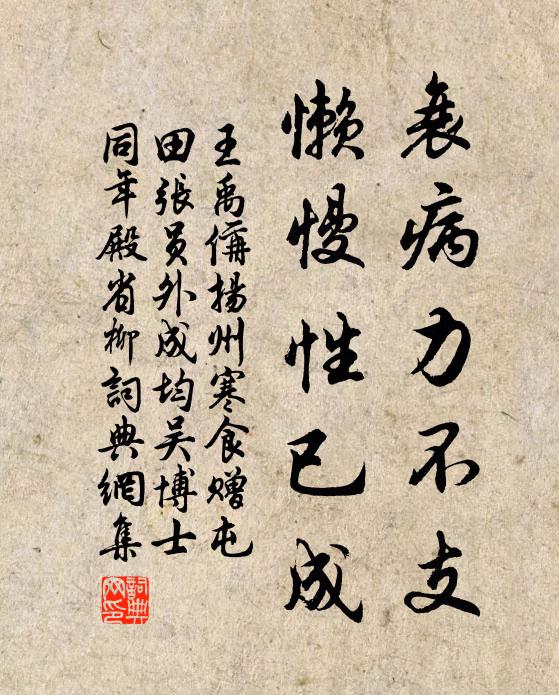 衰病力不支
懒慢性已成
王禹偁揚州寒食赠屯
田張员外成均吴博士
同年殿省柳詞典網集
詞典
网印